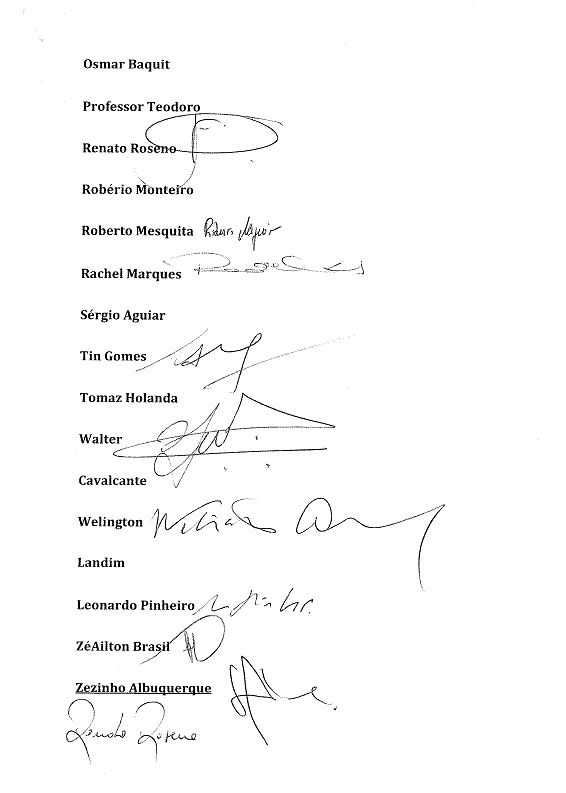 Osmar Baquit
Professor Teodoro
Renato Roseno
Robério Monteiro
Roberto Mesquita
Rachel Marques
Sérgio Aguiar
Tin Gomes
Tomaz Holanda
Walter
Cavalcante
Welington
Landim
Leonardo Pinheiro
ZéAilton Brasil
Zezinho Albuquerque
Renato Roseno